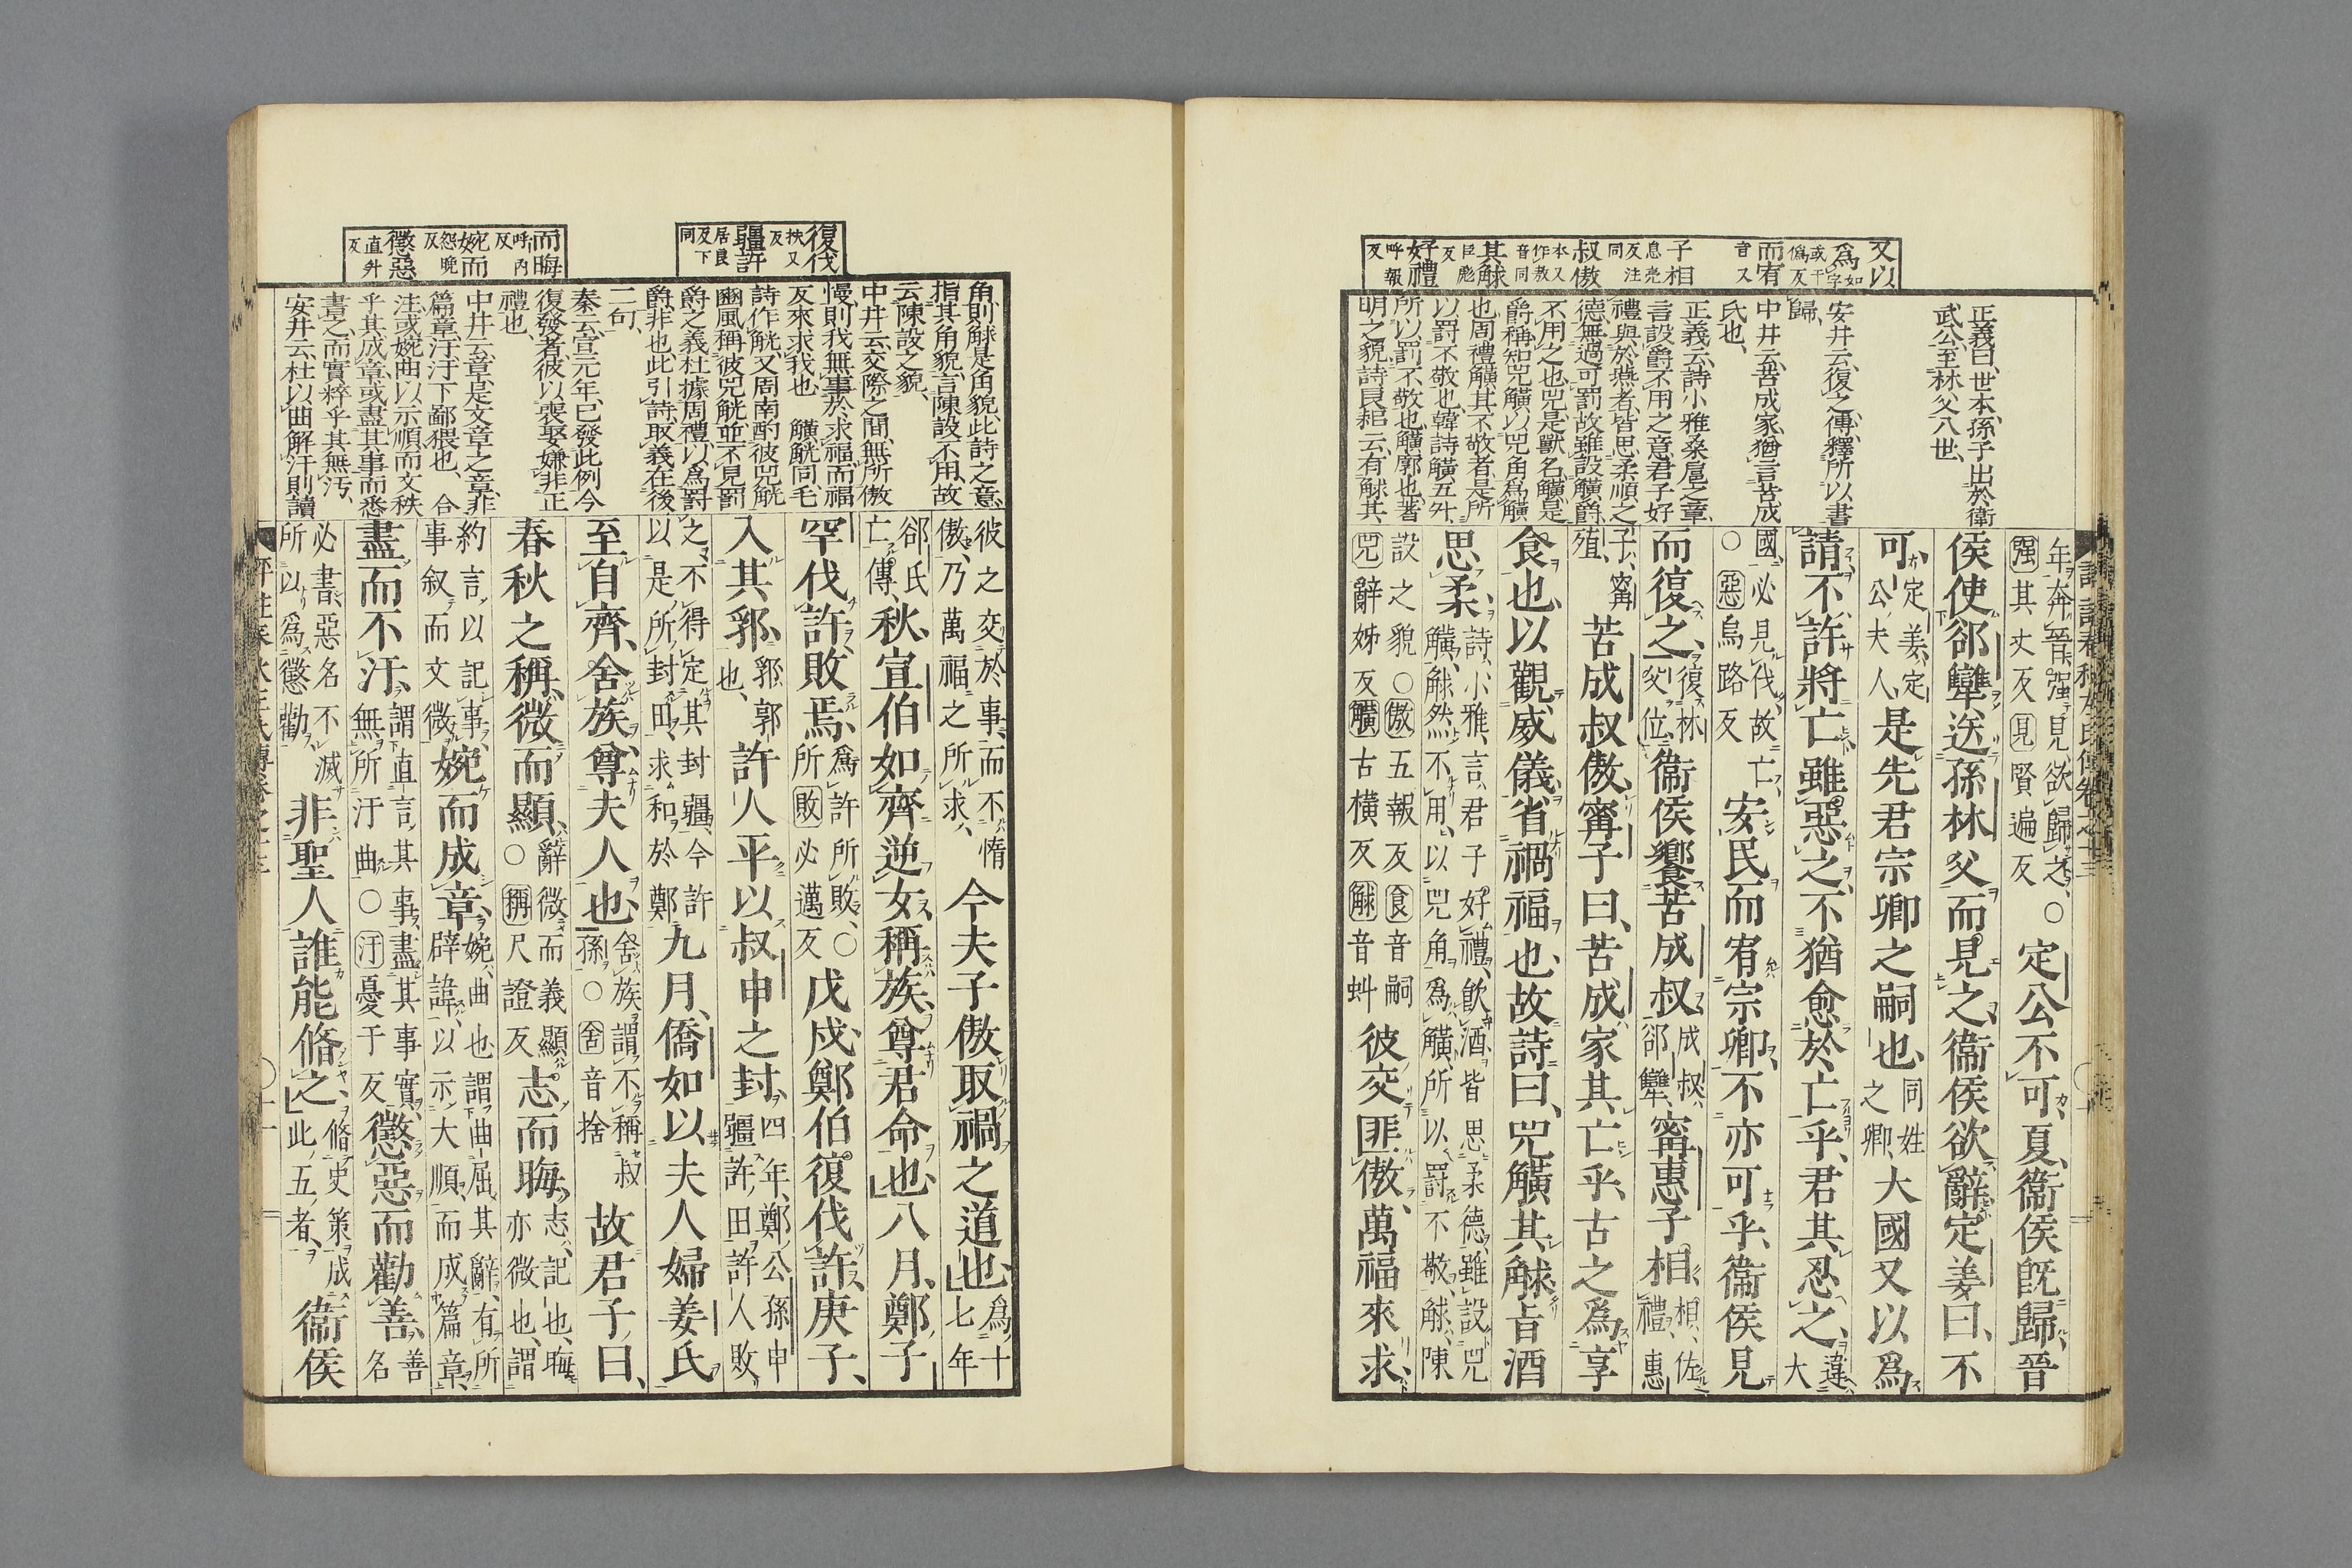 又以
爲如字
或于
僞反
而宥
音又
子相
息亮
反注
同
叔傲
本又
作敖
音同
其觩
巨彪
反
好禮
呼報
反
正義曰、世本、孫子出於衞
武公、至林父八世、
安井云、復之、傳釋所以書
歸、
中井云、苦成家、猶言苦成
氏也、
正義云、詩小雅桑扈之章、
言設爵不用之意、君子好
禮、與於燕者、皆思柔順之
德、無過可罰、故雖設觵爵、
不用之也、兕是獸名、觵是
爵稱、知兕觵以兕角爲觵
也、周禮觵其不敬者、是所
以罰不敬也、韓詩觵五升、
所以罰不敬也、觵廓也、著
明之貌、詩良耜云、有觩其
年奔晉、强見、欲歸之、○
强其丈反見賢遍反
定公不可、夏、衞侯旣歸、晉
侯使郤犫送孫林父而見之、衞侯欲辭、定姜曰、不
可、定姜、定公夫人、是先君宗卿之嗣也、同姓之卿、大國又以爲
請、不許、將亡、雖惡之、不猶愈於亡乎、君其忍之、違大
國、必見伐、故亡、
○惡烏路反
安民而宥宗卿、不亦可乎、衞侯見
而復之、復林父位、衞侯饗苦成叔、成叔、郤犫、甯惠子相、相、佐禮、惠
子、甯殖、苦成叔傲、甯子曰、苦成家其亡乎、古之爲享
食也、以觀威儀、省禍福也、故詩曰、兕觵其觩、旨酒
思柔、詩、小雅、言君子好禮、飮酒皆思柔德、雖設兕
觵、觩然不用、以兕角爲觵、所以罰不敬、觩、陳
設之貌、○傲五報反食音嗣
兕辭姊反觵古橫反觩音虯
彼交匪傲、萬福來求、
復伐
扶又
反
疆許
居良
反下
同
而晦
呼内
反
婉而
怨晩
反
懲惡
直升
反
角、則觩是角貌、此詩之意、
指其角貌、言陳設不用、故
云陳設之貌、
中井云、交際之間、無所傲
慢、則我無事於求福、而福
反來求我也、 觵觥同、毛
詩作觥、又周南酌彼兕觥、
豳風稱彼兕觥、並不見罰
爵之義、杜據周禮以爲罰
爵、非也、此引詩、取義在後
二句、
秦云、宣元年、已發此例、今
復發者、彼以喪娶、嫌非正
禮也、
中井云、章是文章之章、非
篇章、汙汙下鄙猥也、 合
注、或婉曲以示順、而文秩
乎其成章、或盡其事而悉
書之、而實粹乎其無汚、
安井云、杜以曲解汙、則讀
彼之交於事、而不惰
傲、乃萬福之所求、
今夫子傲、取禍之道也、爲十七年
郤氏亡傳、秋、宣伯如齊逆女、稱族、尊君命也、八月、鄭子
罕伐許、敗焉、爲許所敗、○
敗必邁反
戊戌、鄭伯復伐許、庚子、
入其郛、郛、郭也、許人平以叔申之封、四年、鄭公孫申
疆許田、許人敗
之、不得定其封疆、今許
以是所封田、求和於鄭
九月、僑如以夫人婦姜氏
至自齊、舍族、尊夫人也、舍族、謂不稱叔
孫、○舍音捨
故君子曰、
春秋之稱、微而顯、辭微而義顯
○稱尺證反
志而晦、志、記也、晦
亦微也、謂
約言以記事、
事叙而文微
婉而成章、婉、曲也、謂曲屈其辭、有所
辟諱、以示大順、而成篇章、
盡而不汙、謂直言其事、盡其事實、
無所汙曲、○汙憂于反
懲惡而勸善、善名
必書、惡名不滅
所以爲懲勸、
非聖人誰能脩之、脩史策成
此五者、
衞侯